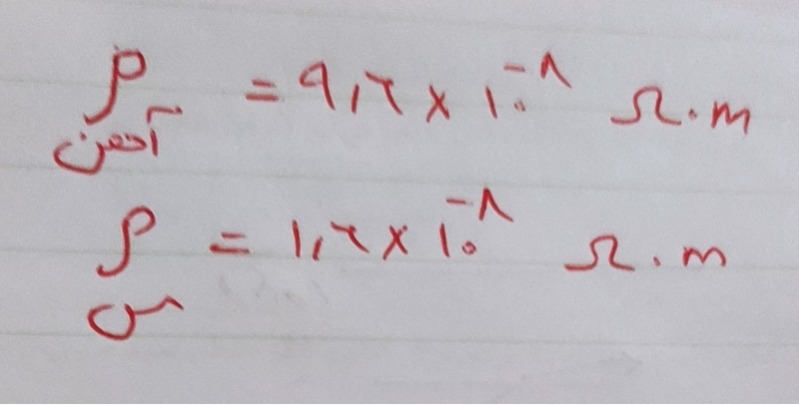 ρ آهن = ۹٫۷ × ۱۰⁻⁸ Ω.m
ρ مس = ۱٫۷ × ۱۰⁻⁸ Ω.m